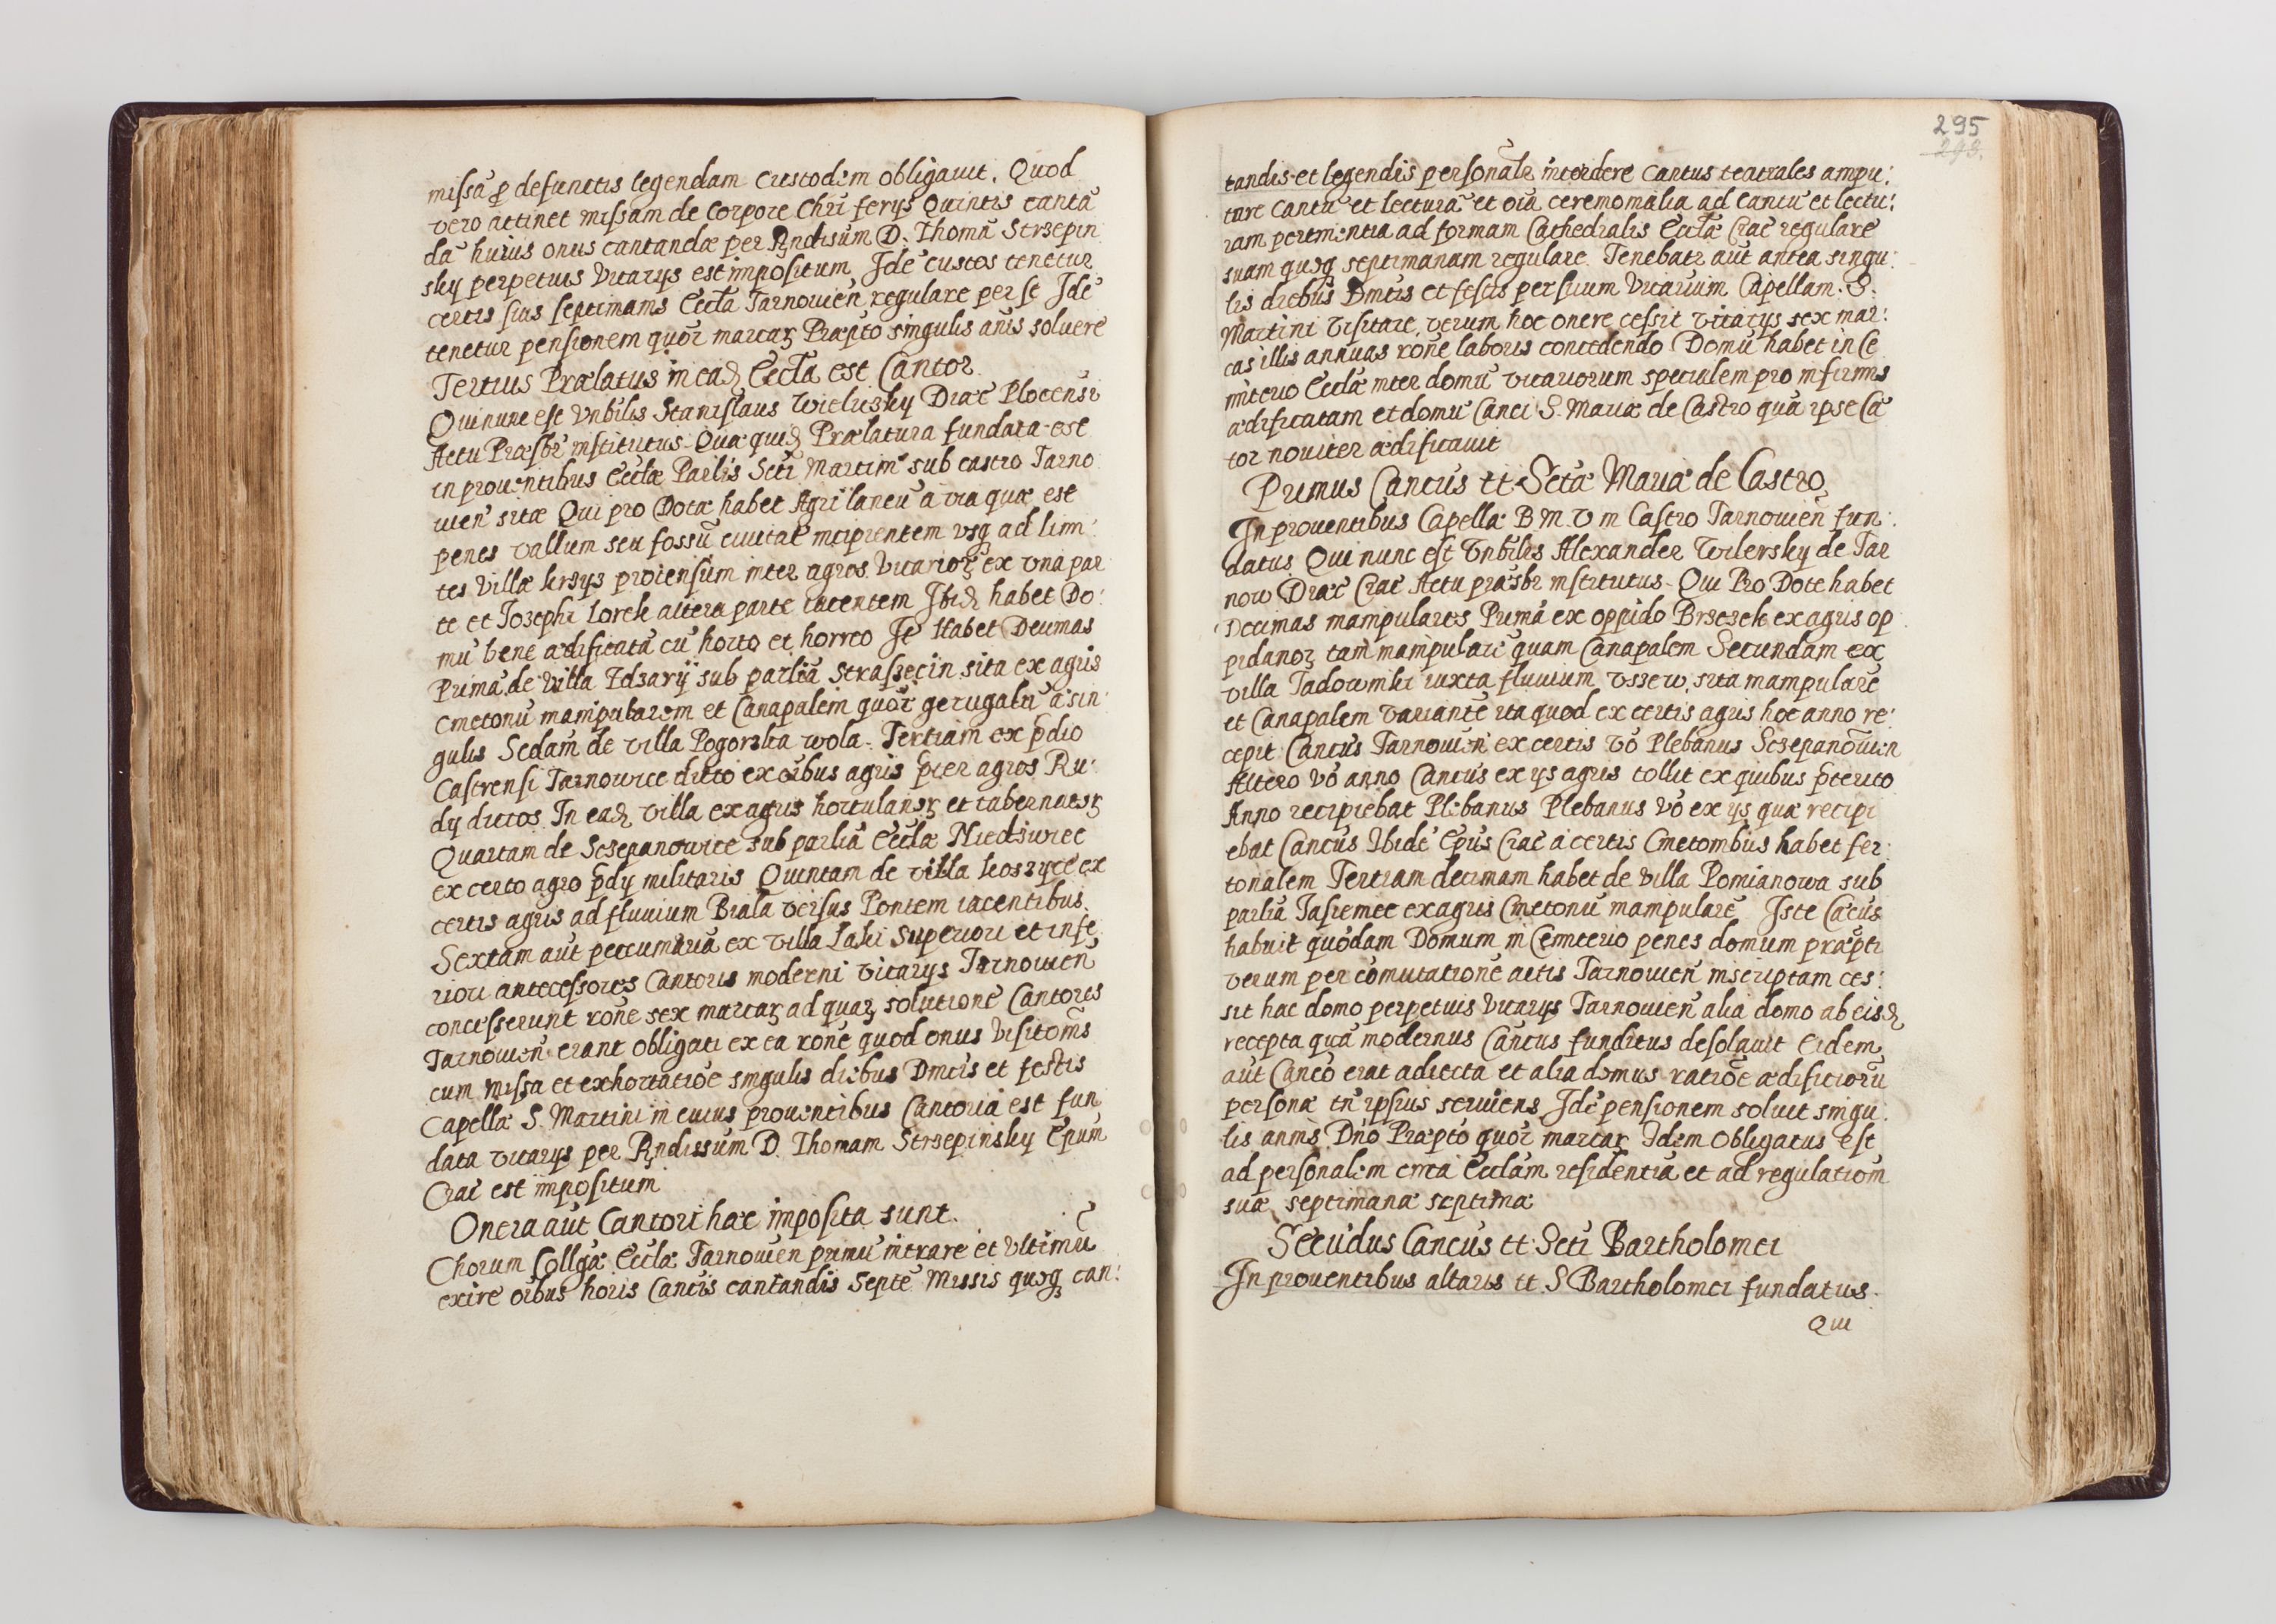 missã p defunctis legendam Custodem obligauit. Quod
vero attinet missam de Corpore Chrũ ferys Quintis canta
dã huius onus cantandæ per Rndisũm D. Thomã Strzepin
sky perpetuis Vicarys est impositum Jdẽ custos tenetur
certis suis septimanis Eccĺa Tarnouień regulare per se Jdẽ
tenetur pensionem quõr marcar Præpto singulis anĩs soluere
Tertius Prælatus in ead Eccĺa est Cantor
Qui nunc est Vnbilis Stanislaus Wielusky Diæc Plocensi
Actu Præsbr institutus Quæ quid Prælatura fundata est
in prouentibus Eccĺæ Parlis Scti Martini sub castro Tarno
uień sitæ Qui pro Dote habet Agri laneũ a via quæ est
penes vallum seu fossũ ciuitat incipientem vsq ad limi:
tes villæ krzys protensum inter agros Vicarior ex vna par
te et Josephi Lorek altera parte iacentem Jbid habet Do:
mũ bene ædificatã cũ horto et horreo Jt Habet Decimas
Primã de villa Zdzarij sub parliã Straszecin sita ex agris
Cmetonũ manipularem et Canapalem quõr gerugatũ a sin:
gulis Secdam de villa Pogorzka wola. Tertiam ex pdio
Castrensi Tarnowice dicto ex oĩbus agris pter agros Ru:
dy dictos. In ead villa ex agris hortulanor et tabernator
Quartam de Sczepanowice sub parliã Eccĺæ Niedzwiec
ex certo agro pdy militaris Quintam de villa koszyce ex
certis agris ad fluuium Biala versus Pontem iacentibus.
Sextam aũt pecuniariã ex villa Laki superiori et infe
riori antecessores Cantoris moderni vicarys Tarnouień
concesserunt rõne sex marcar ad quar solutionẽ Cantores
Tarnouień erant obligati ex ea rõne quod onus visitoñis
cum missa et exhortatiõe singulis diebus Dmcis et festis
Capellæ S. Martini in cuius prouentibus Cantoria est fun
data vicarys per Rndissũm D. Thomam Strzepinsky Epũm
Crać est impositum
Onera aũt Cantori hæc imposita sunt.
Chorum Collgæ Eccĺæ Tarnouien primũ intrare et vltimũ
exire oĩbus horis Canćis cantandis Septẽ Missis quoq can:
295
293.
tandis et legendis personalr intendere Cantus teatrales ampu:
tare Cantũ et lecturã et oĩa ceremonialia ad Cantũ et lectu:
ram pertinentia ad formam Cathedralis Eccĺæ Crać regulare
suam quoq septimanam regulare Tenebatr aũt antea singu:
lis diebus Dmcis et festis per suum Vicarium Capellam S.
Martini visitare, verum hoc onere cessit vicarys sex mar:
cas illis annuas rõne laboris concedendo Domũ habet in Ce
miterio Eccĺæ inter domũ vicariorum specialem pro infirmis
ædificatam et domũ Canći S. Mariæ de Castro quã ipse Cã
tor nouiter ædificauit
Primus Canćus tt Sctæ Mariæ de Castro
In prouentibus Capellæ B M. V in Castro Tarnouień fun:
datus Qui nunc est Vnbilis Alexander Wilersky de Tar
now Diæc Crać Actu præsbr institutus Qui Pro Dote habet
Decimas manipulares Primã ex oppido Brzezek ex agris op
pidanor tam manipularẽ quam Canapalem Secundam ex
villa Jadowniki iuxta fluuium vszew. sita manipularẽ
et Canapalem variantẽ ita quod ex certis agris hoc anno re:
cepit Canćus Tarnouień ex certis võ Plebanus Sczepanouien
Altero võ anno Canćus ex ys agris tollit ex quibus pterito
Anno recipiebat Plebanus Plebanus võ ex ys quæ recipi
ebat Canćus Ibidẽ Epũs Crać a certis Cmetonibus habet fer:
tonalem Tertiam decimam habet de villa Pomianowa sub
parliã Jasiemec ex agris Cmetonũ manipularẽ Iste Cãćus
habuit quõdam Domum in Cemiterio penes domum præpti
verum per cõmutationẽ actis Tarnouień inscriptam ces:
sit hac domo perpetuis vicarys Tarnouień alia domo ab eisd
recepta quã modernus Canćus funditus desolauit Eidem
aũt Canćo erat adiecta et alia domus ratiõe ædificiorũ
personæ tñ ipsius seruiens Jdẽ pensionem soluit singu:
lis annis Dño Præpto quõr marcar Idem obligatus est
ad personalem circa Ecclam residentiã et ad regulatiom
suæ septimanæ septima
Secũdus Canćus tt Scti Bartholomei
In prouentibus altaris tt. S Bartholomei fundatus.
Qui